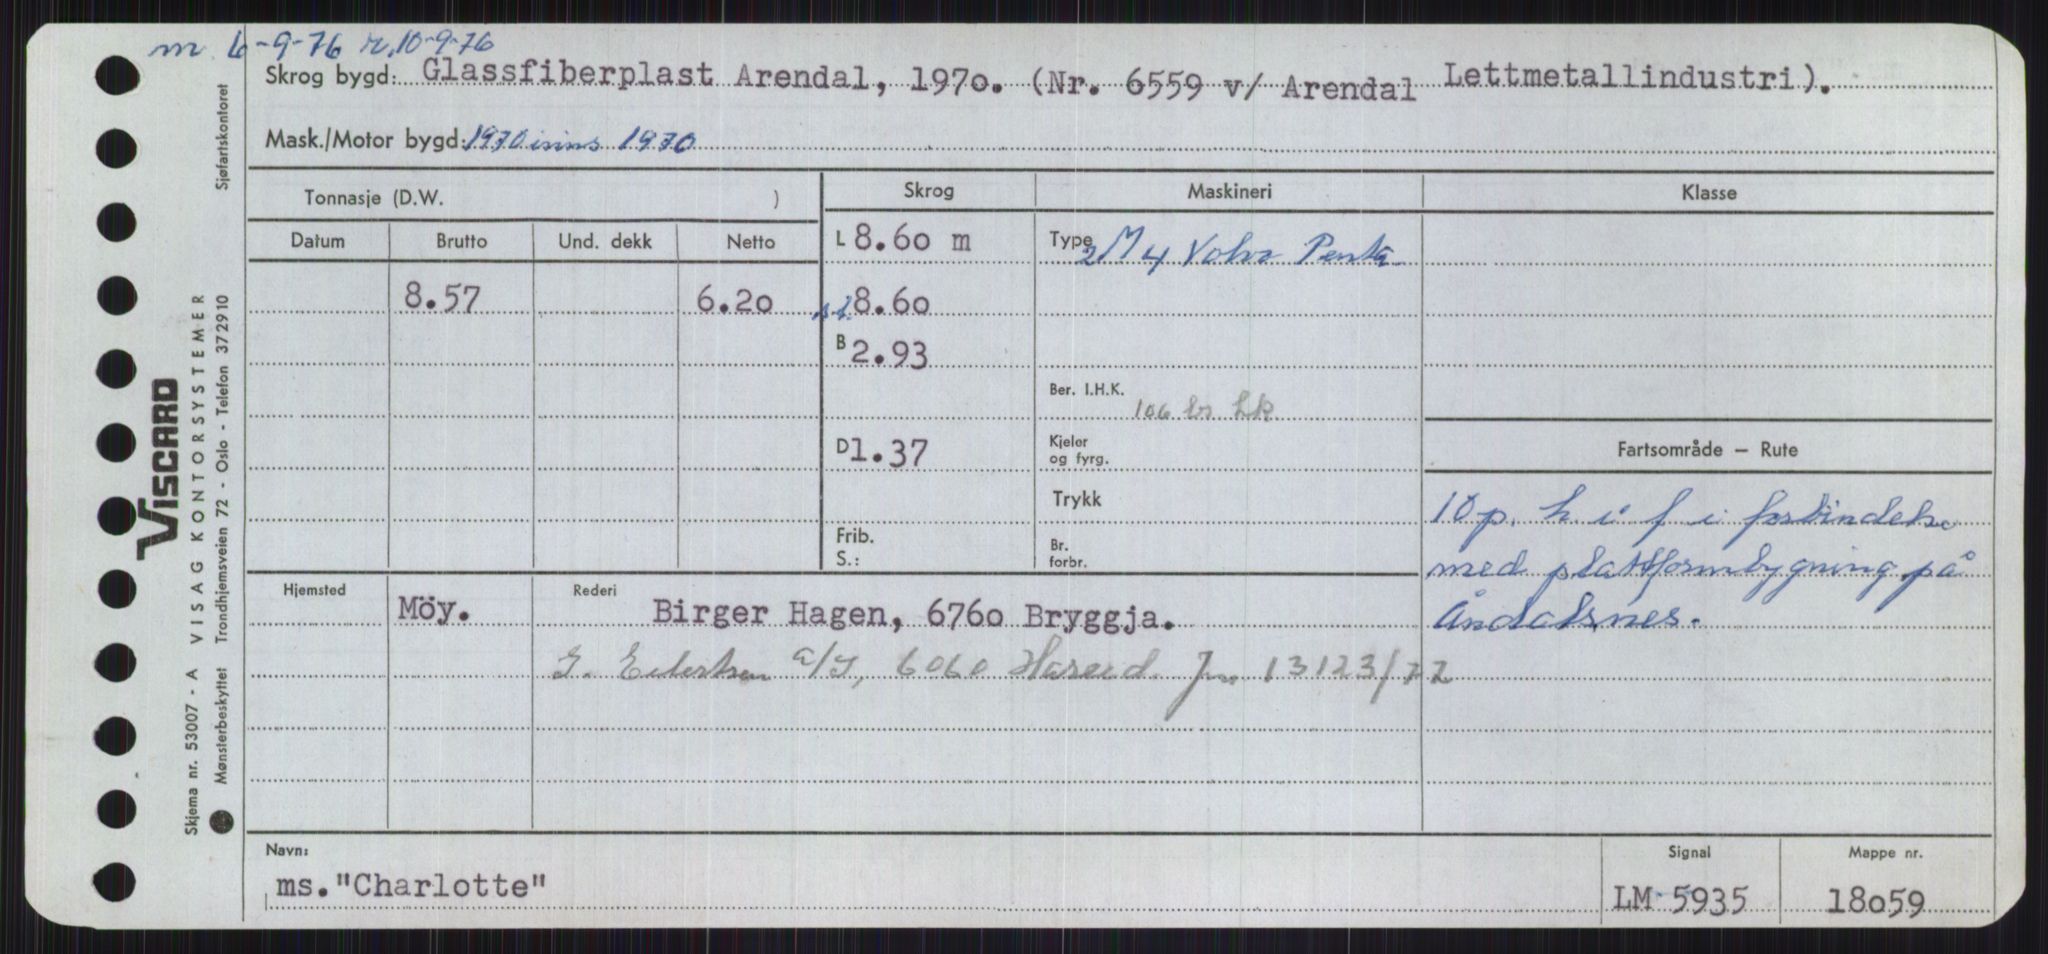 m. 6-9-76 r. 10-9-76
Skrog bygd: Glassfiberplast Arendal, 1970. (Nr. 6559 v/ Arendal Lettmetallindustri).
Mask./Motor bygd: 1970 inns 1970
Tonnasje (D.W. )
Skrog
Maskineri
Klasse
Datum Brutto Und. dekk Netto
L 8.60 m
Type 2 M 4 Volvo Penta
8.57 6.20
8.60
B 2.93
Ber. I.H.K. 106 br. hk
D 1.37
Kjeler
og fyrg.
Fartsområde – Rute
Trykk
10 p. h i f i forbindelse
med plattformbygning på
Åndalsnes.
Frib.
S.:
Br.
forbr.
Hjemsted Möy.
Rederi Birger Hagen, 6760 Bryggja.
6060 Hareid. Jnr 13123/72
Navn:
ms."Charlotte"
Signal
LM 5935
Mappe nr.
18059
VISCARD
Skjema nr. 53007 - A VISAG KONTORSYSTEMER
Mønsterbeskyttet Trondhjemsveien 72 - Oslo - Telefon 37 29 10 Sjøfartskontoret